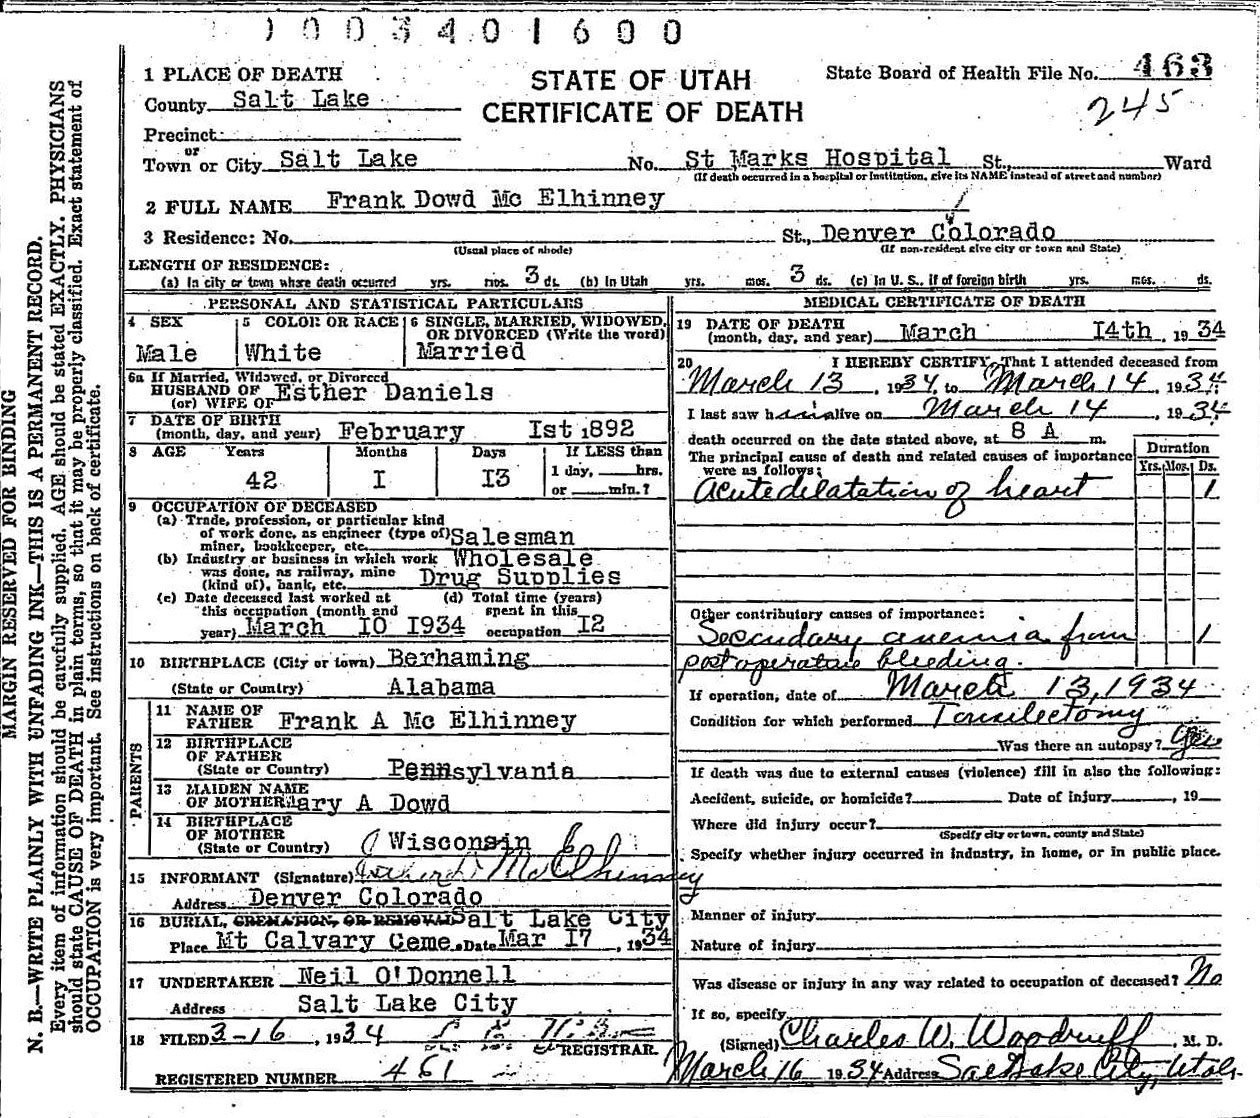 1003401600
1 PLACE OF DEATH
STATE OF UTAH
CERTIFICATE OF DEATH
State Board of Health File No. 463
245
County Salt Lake
Precinct
or
Town or City Salt Lake No. St Marks Hospital St., Ward
(If death occurred in a hospital or institution, give its NAME instead of street and number)
2 FULL NAME Frank Dowd Mc Elhinney
3 Residence: No. St., Denver Colorado
(Usual place of abode) (If non-resident give city or town and State)
LENGTH OF RESIDENCE:
(a) In city or town where death occurred yrs. mos. 3 ds. (b) In Utah yrs. mos. 3 ds. (c) In U. S., if of foreign birth yrs. mos. ds.
PERSONAL AND STATISTICAL PARTICULARS
4 SEX Male
5 COLOR OR RACE White
6 SINGLE, MARRIED, WIDOWED, OR DIVORCED (Write the word) Married
6a If Married, Widowed, or Divorced
HUSBAND OF Esther Daniels
(or) WIFE OF
7 DATE OF BIRTH
(month, day, and year) February Ist 1892
8 AGE Years Months Days If LESS than
42 I I3 1 day, hrs.
or min.?
9 OCCUPATION OF DECEASED
(a) Trade, profession, or particular kind
of work done, as engineer (type of) Salesman
miner, bookkeeper, etc.
(b) Industry or business in which work Wholesale
was done, as railway, mine Drug Supplies
(kind of), bank, etc.
(c) Date deceased last worked at (d) Total time (years)
this occupation (month and spent in this
year) March I0 I934 occupation I2
10 BIRTHPLACE (City or town) Berhaming
(State or Country) Alabama
PARENTS
11 NAME OF
FATHER Frank A Mc Elhinney
12 BIRTHPLACE
OF FATHER
(State or Country) Pennsylvania
13 MAIDEN NAME
OF MOTHER Mary A Dowd
14 BIRTHPLACE
OF MOTHER
(State or Country) Wisconsin
15 INFORMANT (Signature) McElhinney
Address Denver Colorado
16 BURIAL, CREMATION, OR REMOVAL Salt Lake City
Place Mt Calvary Ceme. Date Mar I7, 1934
17 UNDERTAKER Neil O'Donnell
Address Salt Lake City
18 FILED 3-16, 1934
REGISTRAR
REGISTERED NUMBER 461
MEDICAL CERTIFICATE OF DEATH
19 DATE OF DEATH
(month, day, and year) March I4th, 1934
20 I HEREBY CERTIFY, That I attended deceased from
March 13, 1934 to March 14, 1934
I last saw him alive on March 14, 1934
death occurred on the date stated above, at 8 A m.
The principal cause of death and related causes of importance
were as follows:
Duration
Yrs. Mos. Ds.
Acute delatation of heart 1
Other contributory causes of importance:
Secondary anemia from 1
postoperative bleeding.
If operation, date of March 13, 1934
Condition for which performed Tonsilectomy
Was there an autopsy? Yes
If death was due to external causes (violence) fill in also the following:
Accident, suicide, or homicide? Date of injury , 19
Where did injury occur?
(Specify city or town, county and State)
Specify whether injury occurred in industry, in home, or in public place.
Manner of injury
Nature of injury
Was disease or injury in any way related to occupation of deceased? No
If so, specify
(Signed) Charles W. Woodruff, M. D.
March 16 1934 Address Salt Lake City, Utah.
MARGIN RESERVED FOR BINDING
N. B.—WRITE PLAINLY WITH UNFADING INK—THIS IS A PERMANENT RECORD.
Every item of information should be carefully supplied. AGE should be stated EXACTLY. PHYSICIANS
should state CAUSE OF DEATH in plain terms, so that it may be properly classified. Exact statement of
OCCUPATION is very important. See instructions on back of certificate.